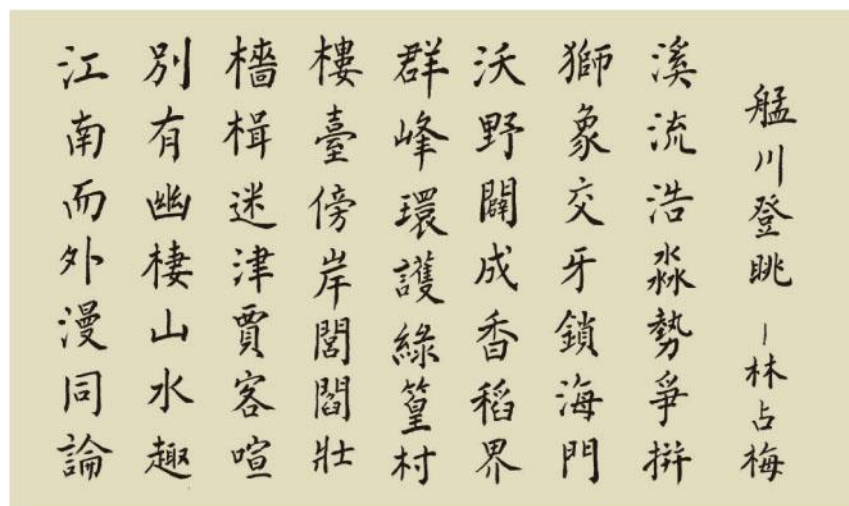 艋川登眺 －林占梅
溪流浩淼勢爭拚
獅象交牙鎖海門
沃野闢成香稻界
群峰環護綠篁村
樓臺傍岸閭閻壯
檣楫迷津賈客喧
別有幽棲山水趣
江南而外漫同論